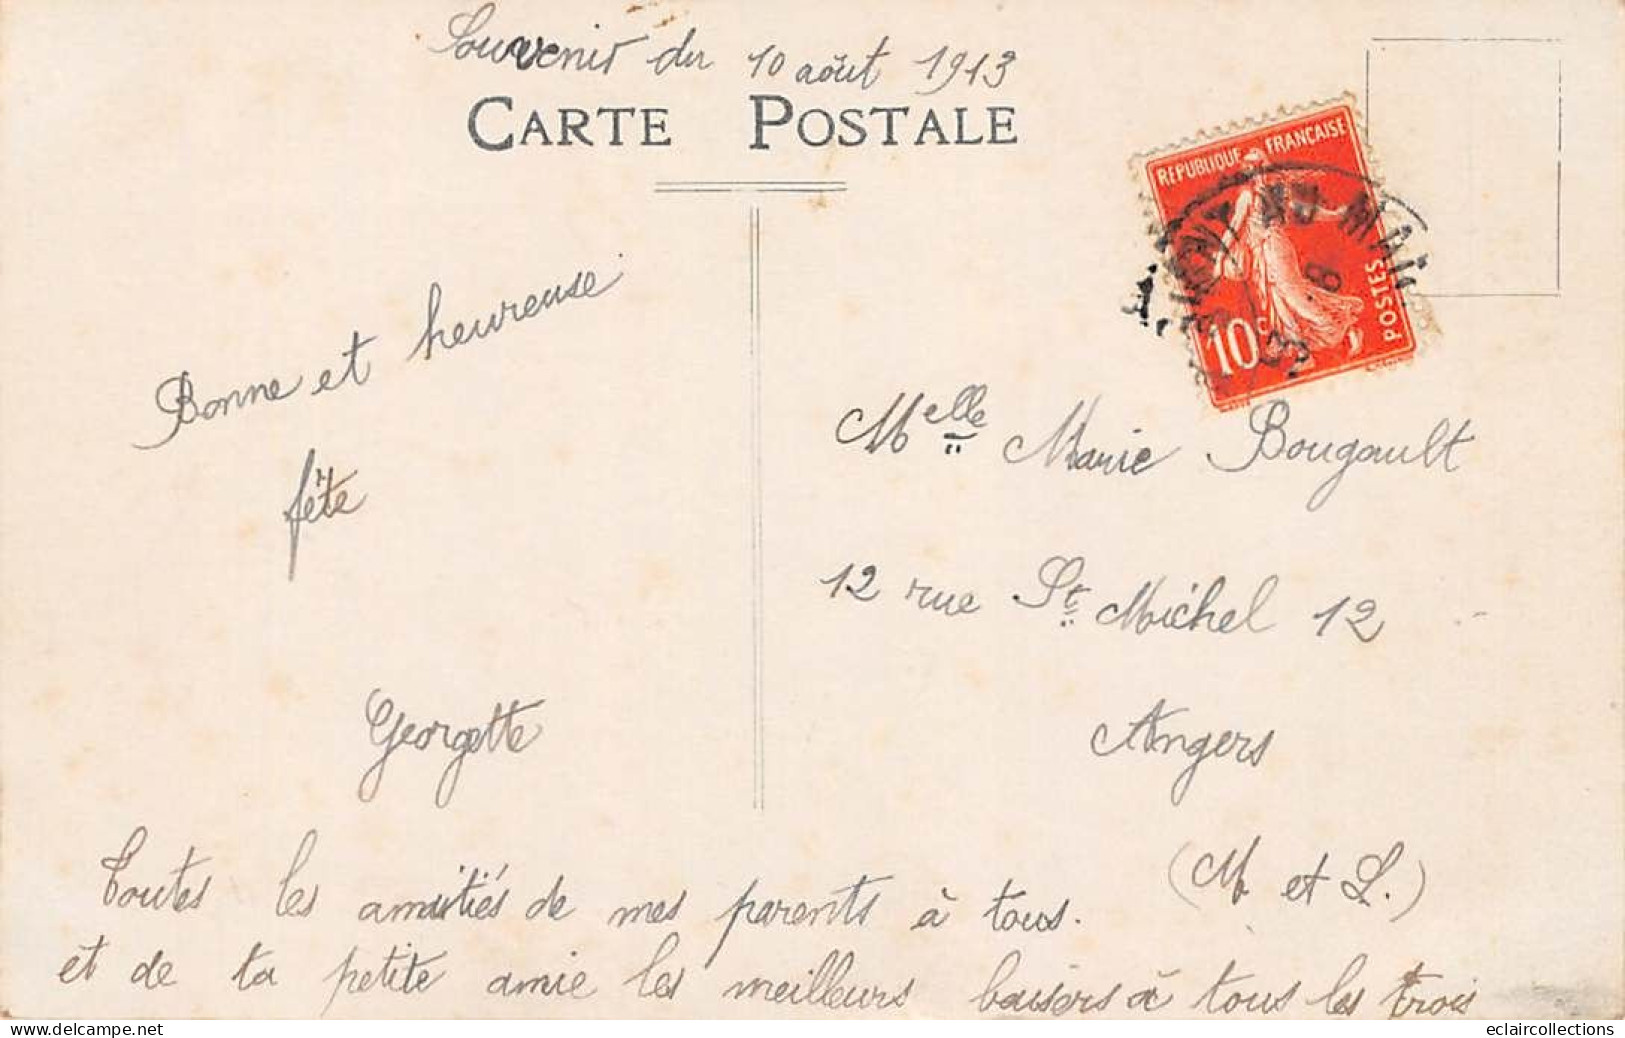 Souvenir du 10 août 1913
CARTE POSTALE
REPUBLIQUE FRANÇAISE
POSTES
10c
Bonne et heureuse
fête
Georgette
Melle Marie Bougault
12 rue St Michel 12
Angers
(M. et L.)
Toutes les amitiés de mes parents à tous.
et de ta petite amie les meilleurs baisers à tous les trois
eclaircollections